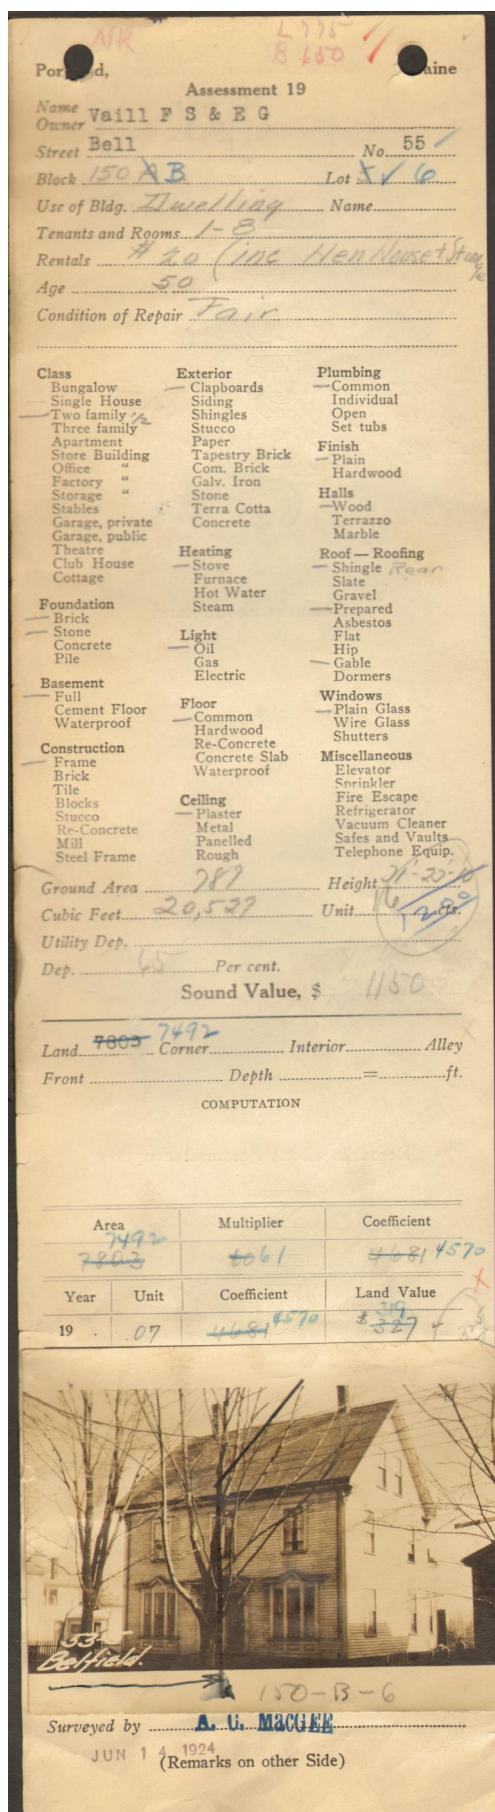 NR
L 775
B 650
Portland, Maine
Assessment 19
Name
Owner Vaill F S & E G
Street Bell No. 55
Block 150 A B Lot 6
Use of Bldg. Dwelling Name
Tenants and Rooms 1-8
Rentals # 20 (inc Hen House + Storage
Age 50
Condition of Repair Fair
Class
Bungalow
Single House
Two family 1/2
Three family
Apartment
Store Building
Office "
Factory "
Storage "
Stables
Garage, private
Garage, public
Theatre
Club House
Cottage
Foundation
Brick
Stone
Concrete
Pile
Basement
Full
Cement Floor
Waterproof
Construction
Frame
Brick
Tile
Blocks
Stucco
Re-Concrete
Mill
Steel Frame
Exterior
Clapboards
Siding
Shingles
Stucco
Paper
Tapestry Brick
Com. Brick
Galv. Iron
Stone
Terra Cotta
Concrete
Heating
Stove
Furnace
Hot Water
Steam
Light
Oil
Gas
Electric
Floor
Common
Hardwood
Re-Concrete
Concrete Slab
Waterproof
Ceiling
Plaster
Metal
Panelled
Rough
Plumbing
Common
Individual
Open
Set tubs
Finish
Plain
Hardwood
Halls
Wood
Terrazzo
Marble
Roof — Roofing
Shingle Rear
Slate
Gravel
Prepared
Asbestos
Flat
Hip
Gable
Dormers
Windows
Plain Glass
Wire Glass
Shutters
Miscellaneous
Elevator
Sprinkler
Fire Escape
Refrigerator
Vacuum Cleaner
Safes and Vaults
Telephone Equip.
Ground Area 787 Height
Cubic Feet 20,527 Unit 16 cts.
Utility Dep.
Dep. 65 Per cent.
Sound Value, $ 1150
Land 7803 7492 Corner Interior Alley
Front Depth = ft.
COMPUTATION
Area Multiplier Coefficient
7492
7803 60 61 4681 4570
Year Unit Coefficient Land Value
19 .07 4681 4570 $ 327 319
535
Belfield.
150-B-6
Surveyed by A. C. MacGEE
JUN 14 1924
(Remarks on other Side)